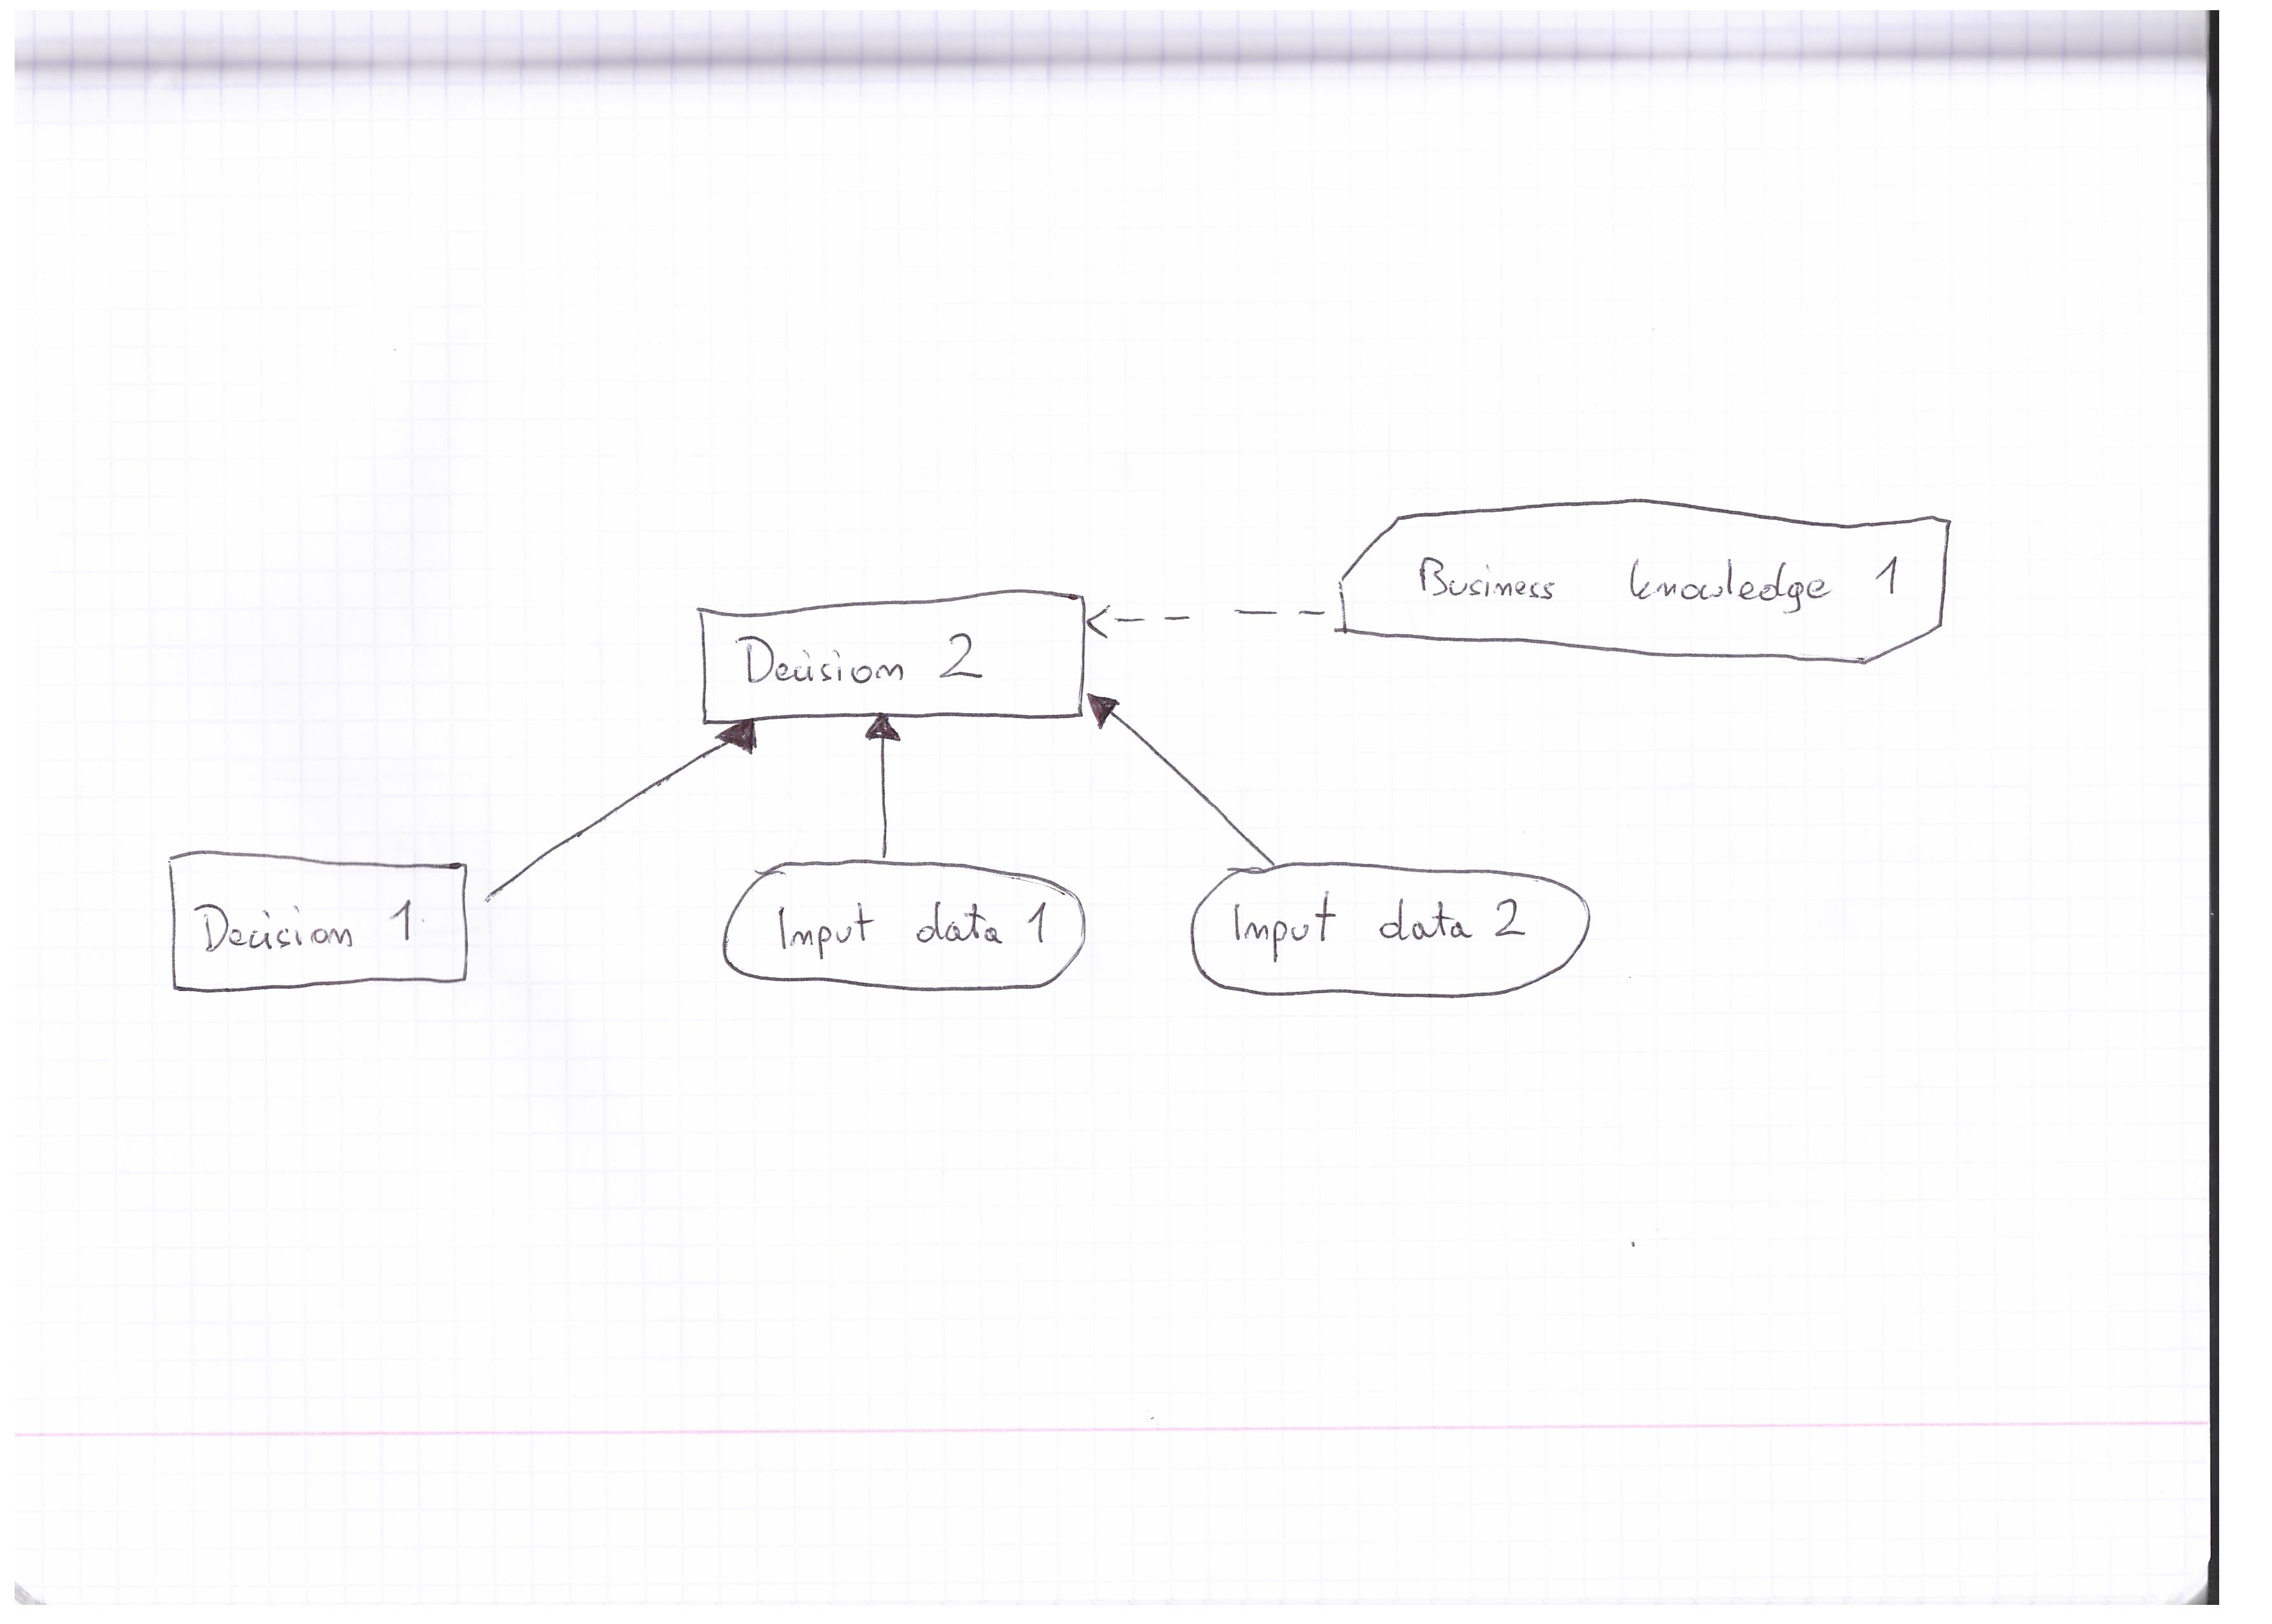 Business knowledge 1
Decision 2
Decision 1
Input data 1
Input data 2